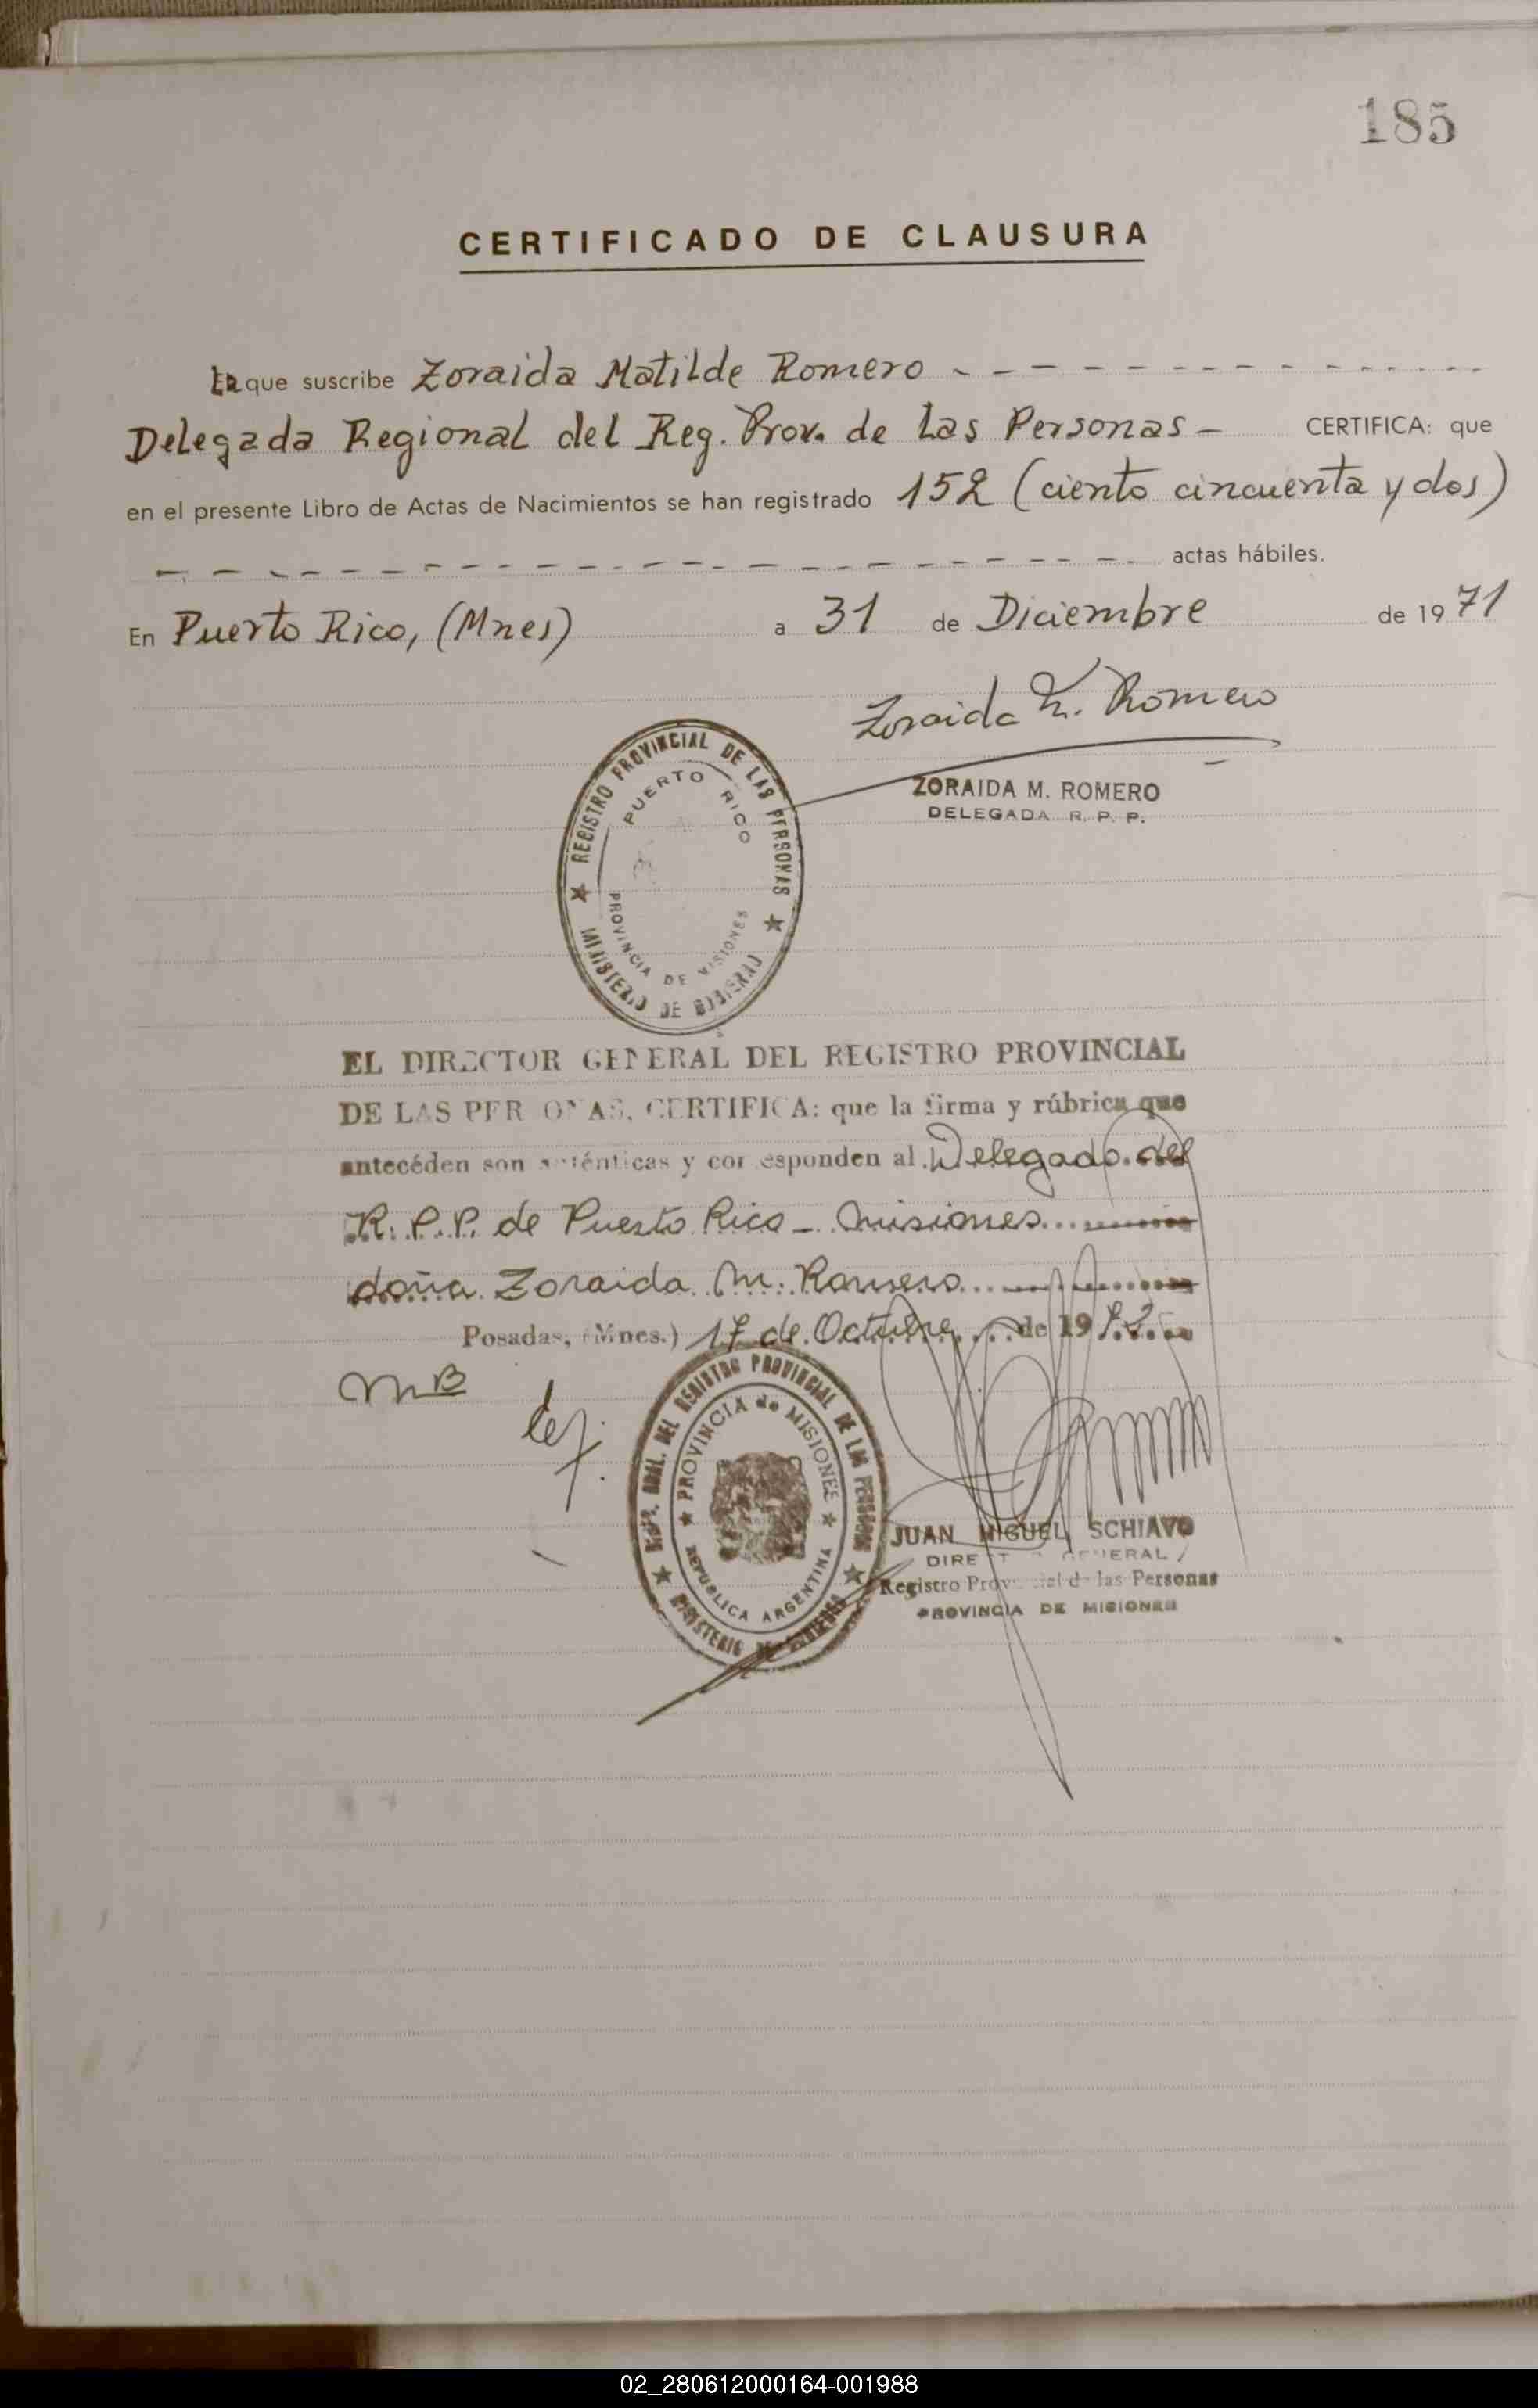 185
CERTIFICADO DE CLAUSURA
La que suscribe Zoraida Matilde Romero
Delegada Regional del Reg. Prov. de Las Personas - CERTIFICA: que
en el presente Libro de Actas de Nacimientos se han registrado 152 (ciento cincuenta y dos)
actas hábiles.
En Puerto Rico, (Mnes) a 31 de Diciembre de 1971
Zoraida M. Romero
ZORAIDA M. ROMERO
DELEGADA R. P. P.
REGISTRO PROVINCIAL DE LAS PERSONAS
PUERTO RICO
PROVINCIA DE MISIONES
MINISTERIO DE GOBIERNO
EL DIRECTOR GENERAL DEL REGISTRO PROVINCIAL
DE LAS PERSONAS, CERTIFICA: que la firma y rúbrica que
antecéden son auténticas y corresponden al Delegado del
R. P. P. de Puerto Rico - Misiones
doña Zoraida M. Romero
Posadas, (Mnes.) 17 de Octubre de 1972
MB
DEL REGISTRO PROVINCIAL DE LAS PERSONAS
PROVINCIA de MISIONES
REPUBLICA ARGENTINA
MINISTERIO DE GOBIERNO
JUAN MIGUEL SCHIAVO
DIRECTOR GENERAL
Registro Provincial de las Personas
PROVINCIA DE MISIONES
02_280612000164-001988